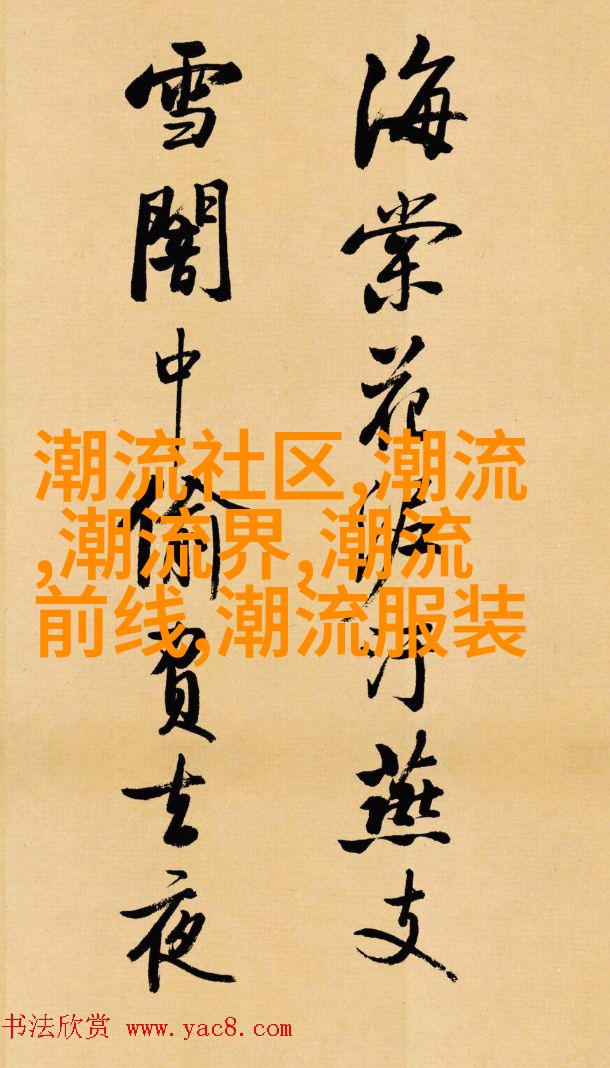 海棠花泥污燕支
雪闇中偷負去夜
潮流社区,潮流
,潮流界,潮流
前线,潮流服装
书法欣赏 www.yac8.com